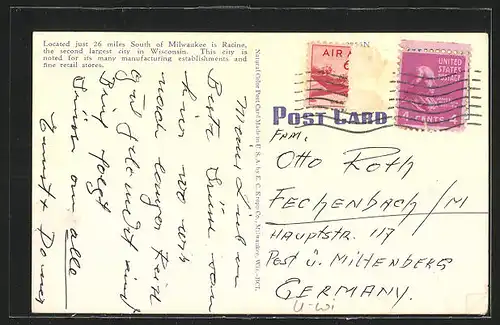 Located just 26 miles South of Milwaukee is Racine,
the second largest city in Wisconsin. This city is
noted for its many manufacturing establishments and
fine retail stores.
Meine Lieben
Beste Grüsse von
hier wo wir
nach langer Zeit
gut gelandet sind
Brief folgt
Grüsse an alle
Natural Color Post Card Made in U. S. A. by E. C. Kropp Co., Milwaukee, Wis.
AIR MA
6
UNITED
STATES
POSTAGE
4 CENTS 4
POST CARD
Fam.
Otto Roth
FECHENBACH/M
HAUPTSTR. 117
Post ü. MILTENBERG
GERMANY.
U-Wi